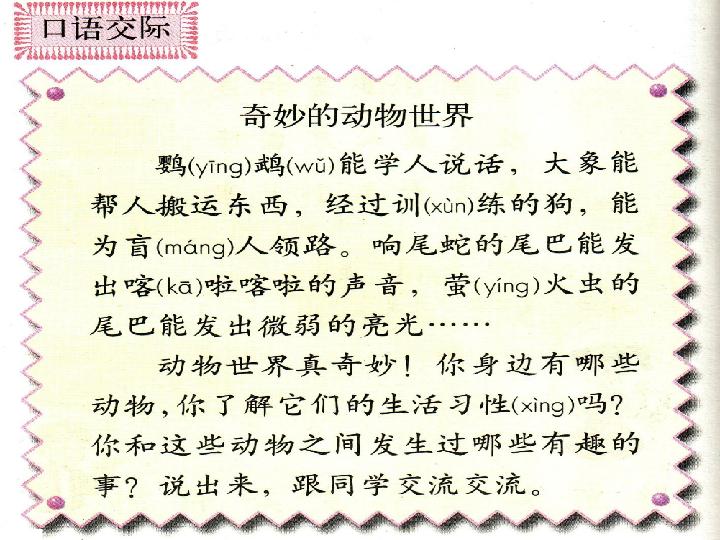 口语交际
奇妙的动物世界
鹦(yīng)鹉(wǔ)能学人说话，大象能
帮人搬运东西，经过训(xùn)练的狗，能
为盲(máng)人领路。响尾蛇的尾巴能发
出喀(kā)啦喀啦的声音，萤(yíng)火虫的
尾巴能发出微弱的亮光……
动物世界真奇妙！你身边有哪些
动物，你了解它们的生活习性(xìng)吗？
你和这些动物之间发生过哪些有趣的
事？说出来，跟同学交流交流。